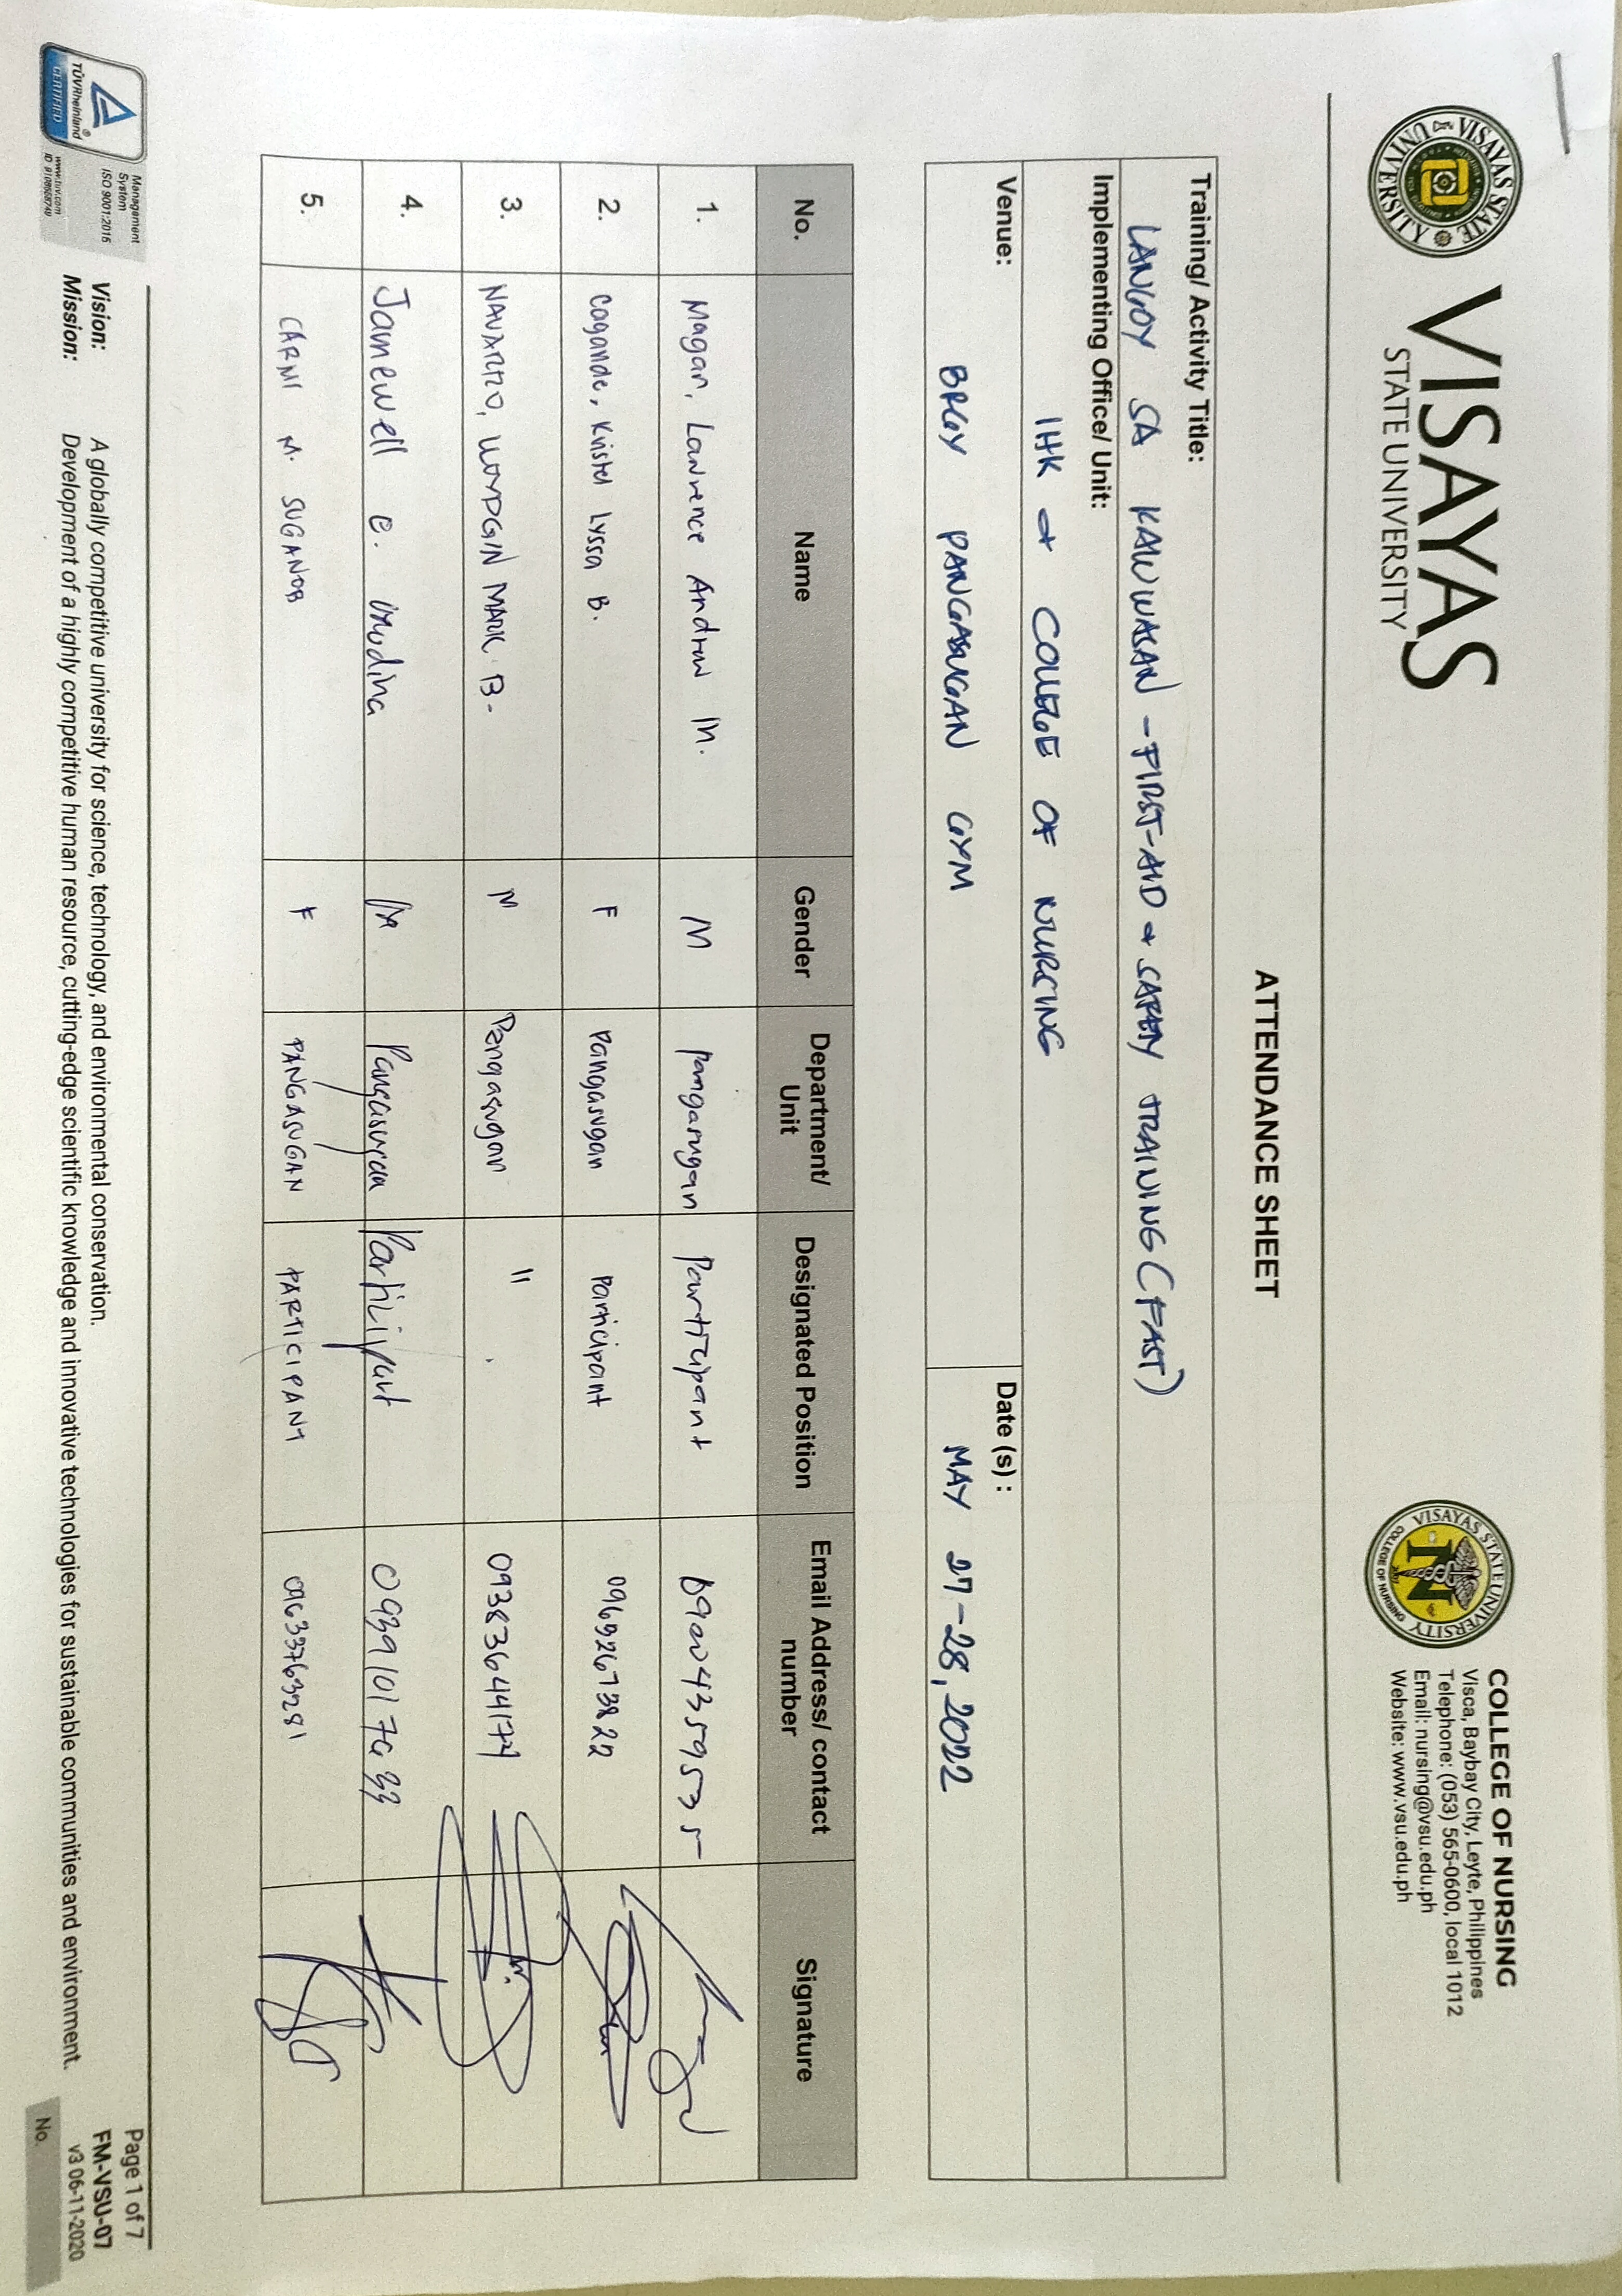 VISAYAS
STATE UNIVERSITY
VISAYAS STATE UNIVERSITY
VISAYAS STATE UNIVERSITY
COLLEGE OF NURSING
N
COLLEGE OF NURSING
Visca, Baybay City, Leyte, Philippines
Telephone: (053) 565-0600, local 1012
Email: nursing@vsu.edu.ph
Website: www.vsu.edu.ph
ATTENDANCE SHEET
Training/ Activity Title:
LANGOY SA KAUWAGAN - FIRST-AID & SAFETY TRAINING (FAST)
Implementing Office/ Unit:
IHK & COLLEGE OF NURSING
Venue: Date (s) :
BRGY PANGASUGAN GYM MAY 27-28, 2022
No. Name Gender Department/ Unit Designated Position Email Address/ contact number Signature
1. Magan, Lawrence Andrew M. M pangasugan participant 09204359535
2. Cagande, Kristel Lyssa B. F Pangasugan Participant 09692673822
3. NAVARRO, LLOYDGIN MARK B. M Pangasugan "
4. Jamewell E. M Pangasugan Participant
5. CARMI M. SUGANOB F PANGASUGAN PARTICIPANT 09633763281
TÜVRheinland®
CERTIFIED
Management
System
ISO 9001:2015
www.tuv.com
Vision: A globally competitive university for science, technology, and environmental conservation.
Mission: Development of a highly competitive human resource, cutting-edge scientific knowledge and innovative technologies for sustainable communities and environment.
Page 1 of 7
FM-VSU-07
v3 06-11-2020
No.